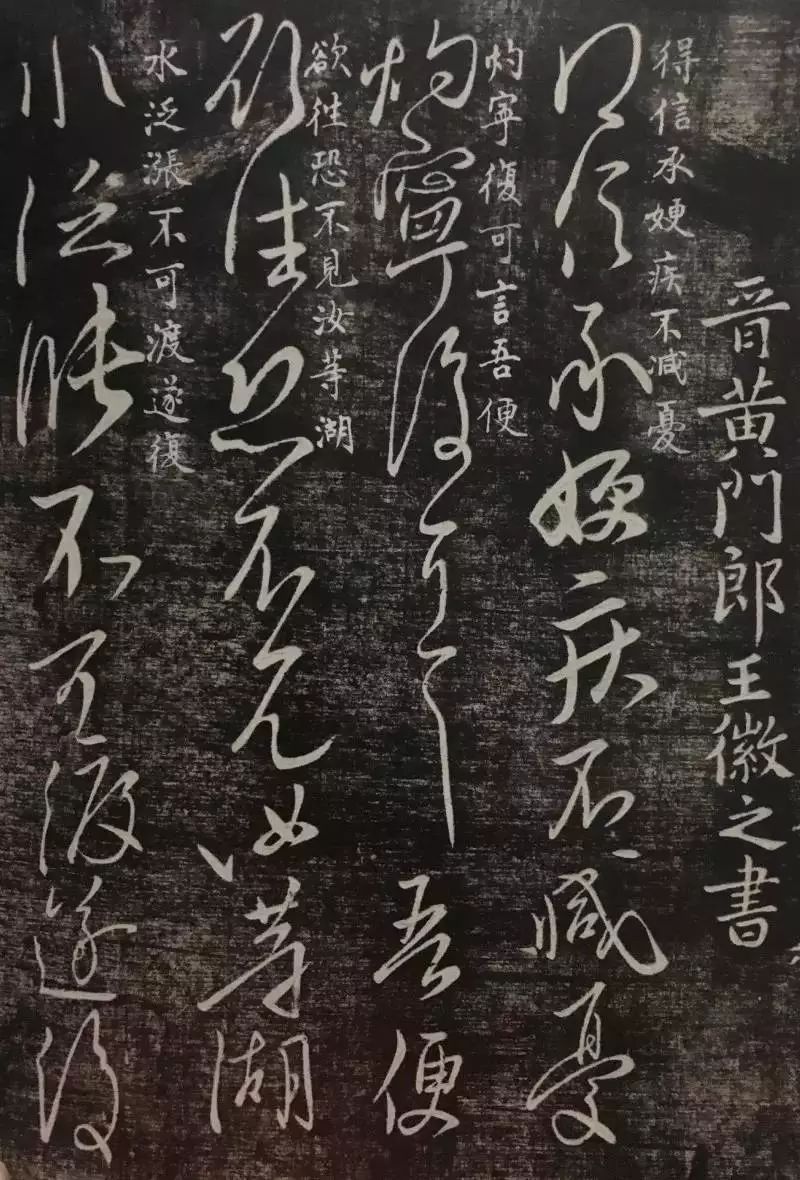 晉黃門郎王徽之書
得信承㛐疾不減憂
得信承㛐疾不減憂
灼寧復可言吾便
灼寧復可言吾便
欲徃恐不見汝等湖
欲往恐不見汝等湖
水泛漲不可渡遂復
水泛漲不可渡遂復